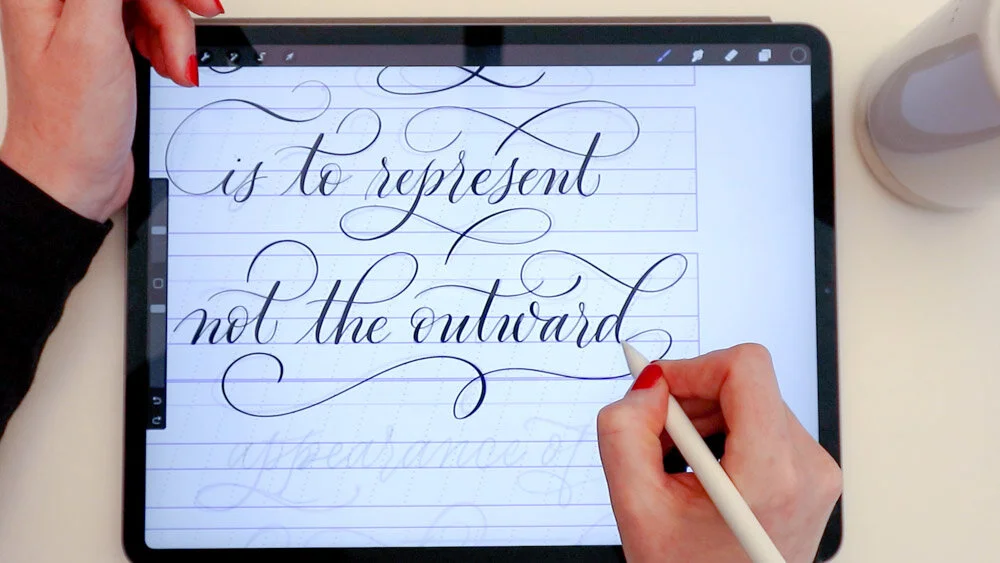 is to represent
not the outward
appearance of